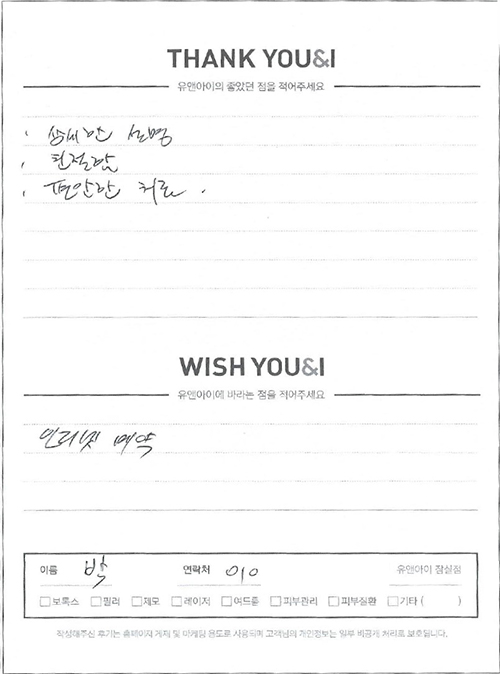 THANK YOU&I
유앤아이의 좋았던 점을 적어주세요
· 상세한 설명
· 친절함
· 편안한 치료.
WISH YOU&I
유앤아이에 바라는 점을 적어주세요
인터넷 예약
이름 박 연락처 010 유앤아이 잠실점
□보톡스 □필러 □제모 □레이저 □여드름 □피부관리 □피부질환 □기타 ( )
작성해주신 후기는 홈페이지 게재 및 마케팅 용도로 사용되며 고객님의 개인정보는 일부 비공개 처리로 보호됩니다.